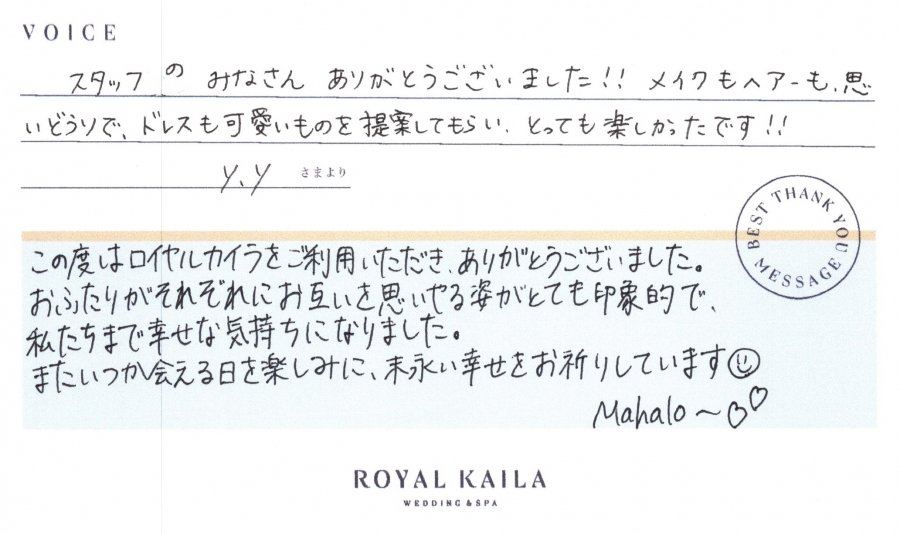 VOICE
スタッフの みなさん ありがとうございました!! メイクもヘアーも、思
いどうりで、ドレスも可愛いものを提案してもらい、とっても楽しかったです!!
y.y さまより
BEST THANK YOU MESSAGE
この度はロイヤルカイラをご利用いただき、ありがとうございました。
おふたりがそれぞれにお互いを思いやる姿がとても印象的で、
私たちまで幸せな気持ちになりました。
またいつか会える日を楽しみに、末永い幸せをお祈りしています☺
Mahalo～♡♡
ROYAL KAILA
WEDDING & SPA